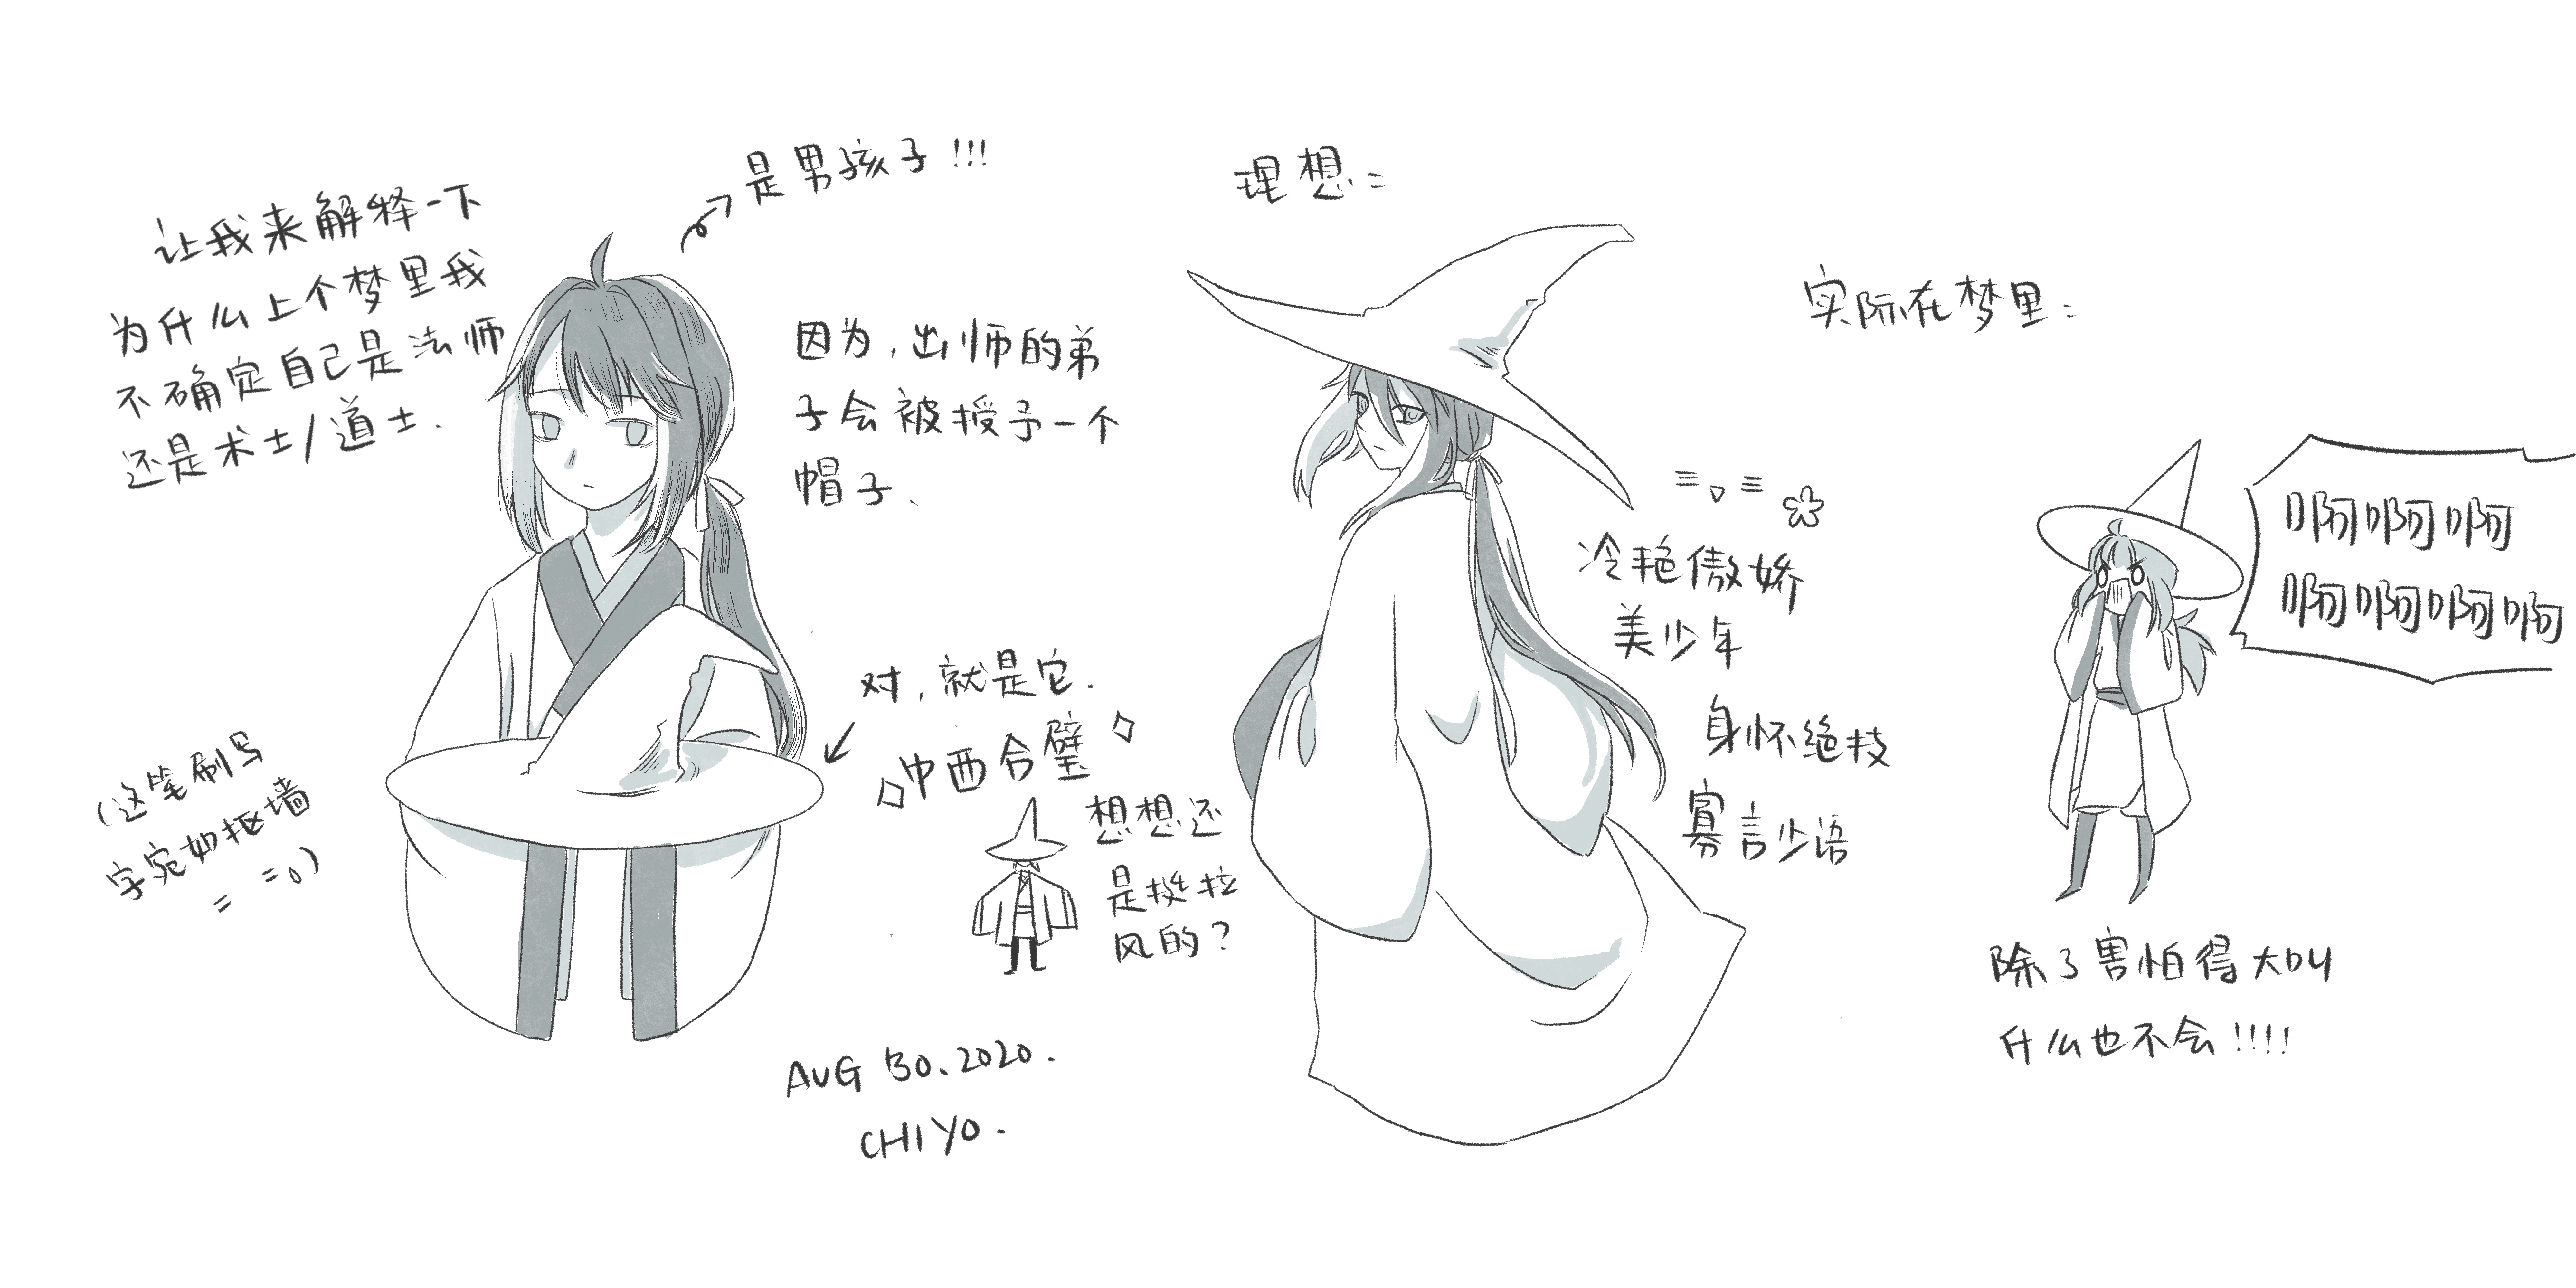 让我来解释一下
为什么上个梦里我
不确定自己是法师
还是术士/道士.
是男孩子!!!
因为,出师的弟
子会被授予一个
帽子、
对,就是它.
中西合璧
想想还
是挺拉
风的?
(这笔刷写
字宛如抠墙
= =。)
AUG 30.2020.
CHIYO.
理想:
≡。≡
冷艳傲娇
美少年
身怀绝技
寡言少语
实际在梦里:
啊啊啊
啊啊啊啊
除了害怕得大叫
什么也不会!!!!